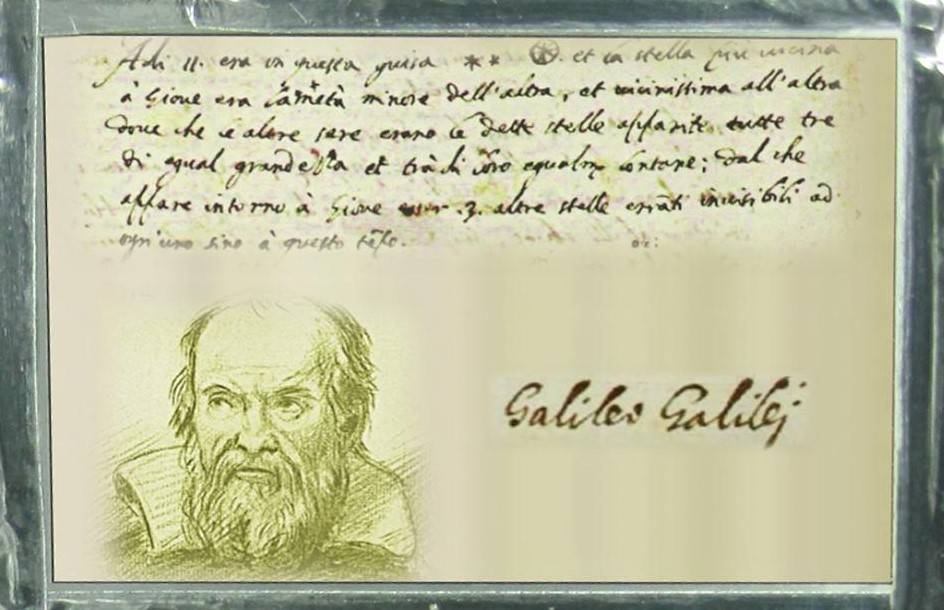 Adi 11. era in questa guisa ** ⊛. et la stella più vicina
à Giove era la metà minore dell'altra, et vicinissima all'altra
dove che le altre sere erano le dette stelle apparite tutte tre
di equal grandezza et trà di loro equalm. lontane; dal che
appare intorno à Giove esser .3. altre stelle erranti invisibili ad
ogn'uno sino à questo tēpo.
Galileo Galilej